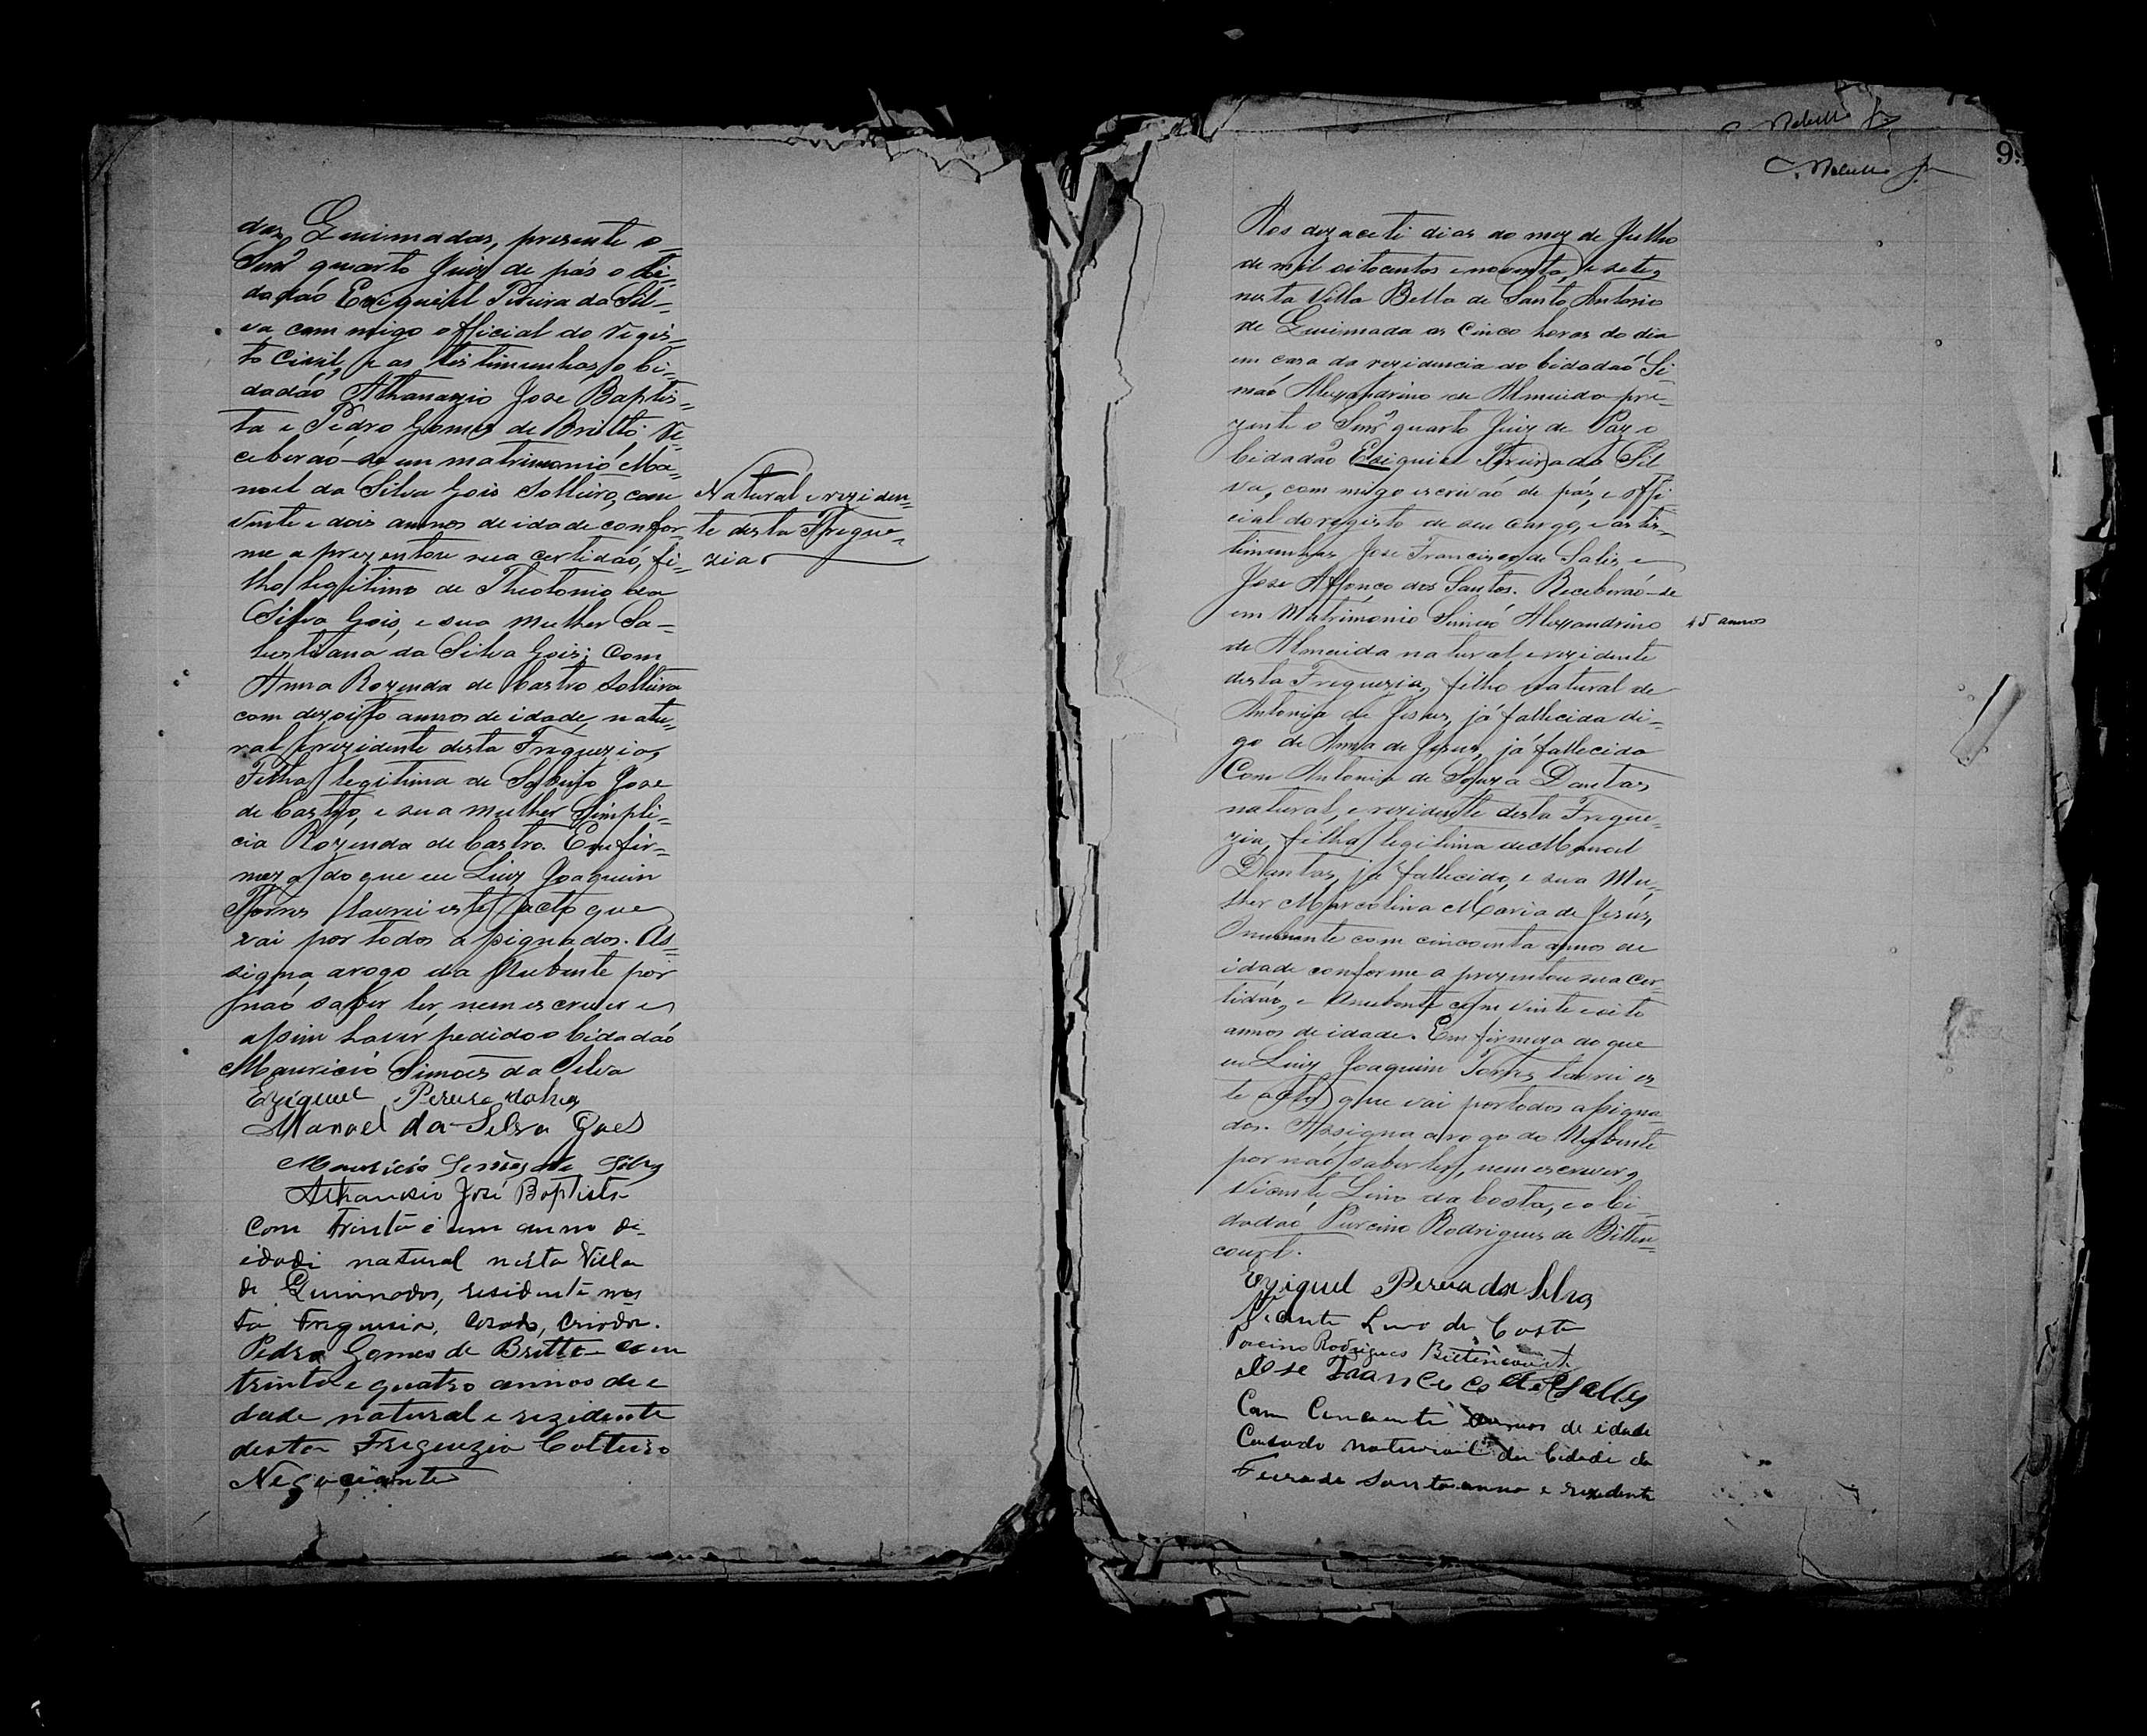 das Queimadas, presente o
Snr. quarto Juiz de pás o Ci=
dadão Eziquiel Pereira da Sil=
va, com migo official do regis=
to Civil, e as testimunhas, o Ci=
dadão Athanazio Jose Baptis=
ta e Pedro Gomes de Britto. Re=
ceberaó-se em matrimonio Ma=
noel da Silva Gois solteiro, com
vinte e dois annos de idade confor=
me a prezentou sua certidaó, fi=
lho legitimo de Theotonio da
Silva Gois, e sua mulher Sa=
lustiana da Silva Gois; Com
Anna Rozenda de Castro solteira
com dezoito annos de idade, natu=
ral e rezidente desta Freguezia,
Filha legitima de Jose
de Castro, e sua mulher Simpli=
cia Rozenda de Castro. Em fir=
meza do que eu Luiz Joaquim
Torres lavrei este acto que
vai por todos assignados. As=
signa arogo da Nubente por
naó saber ler, nem escrever e
assim haver pedido o Cidadaó
Mauricio Simoes da Silva
Natural e reziden=
te desta Fregue=
zia
Eziquiel Pereira da Silva
Manoel da Silva Goes
Mauricio Simões da Silva
Athanasio José Baptista
com trinta e um anno de
idade natural nesta Villa
de Queimadas, residente nes
ta freguesia, Casado, Criador.
Pedro Gomes de Britto com
trinta e quatro annos de e
dade natural e rezidente
desta Freguezia Solteiro
Negociante
9
Aos dezaceti dias do mez de Julho
de mil oitocentos e noventa, e sete,
nesta Villa Bella de Santo Antonio
de Queimada as Cinco horas do dia
em casa da rezidencia do Cidadaó Si=
maó Alexandrino de Almeida pre=
zente o Snr. quarto Juiz de Paz o
Cidadaõ Eziquiel Pereira da Sil
va, com migo escrivaó de páz, e Offi=
cial do registo de seu cargo, e as tes=
timunhas Jose Francisco de Salis e
Jose Affonço dos Santos. Receberaó-se
em Matrimonio Simaó Alexandrino
de Almeida natural e rezidente
desta Freguezia, filho natural de
Antonia de Jesus, já fallecida di=
go de Anna de Jesus, já fallecida
Com Antonia de Souza Dantas
natural, e rezidente desta Fregue=
zia, filha legitima de Manoel
Dantas, já fallecido, e sua Mu=
lher Marcolina Maria de Jesus,
O nubente com cincoenta annos de
idade conforme a prezentou sua cer=
tidão, e Anubente com vinte e oito
annos de idade. Em firmeza do que
eu Luiz Joaquim Torres lavrei es
te acto que vai por todos assigna=
dos. Assigna arogo do Nubente
por naó saber ler, nem escrever,
Vicente Lino da Costa, e o Ci=
dadaó Purcino Rodrigues de Bitten=
court.
45 annos
Eziquel Pereira da Silva
Vicente Lino da Costa
Porcino Rodrigues Bittencourt
Jose Francisco de Salles
Com Concoenta annos de idade
Casado natural da Cidade da
Feira de Santa anna e rezidente